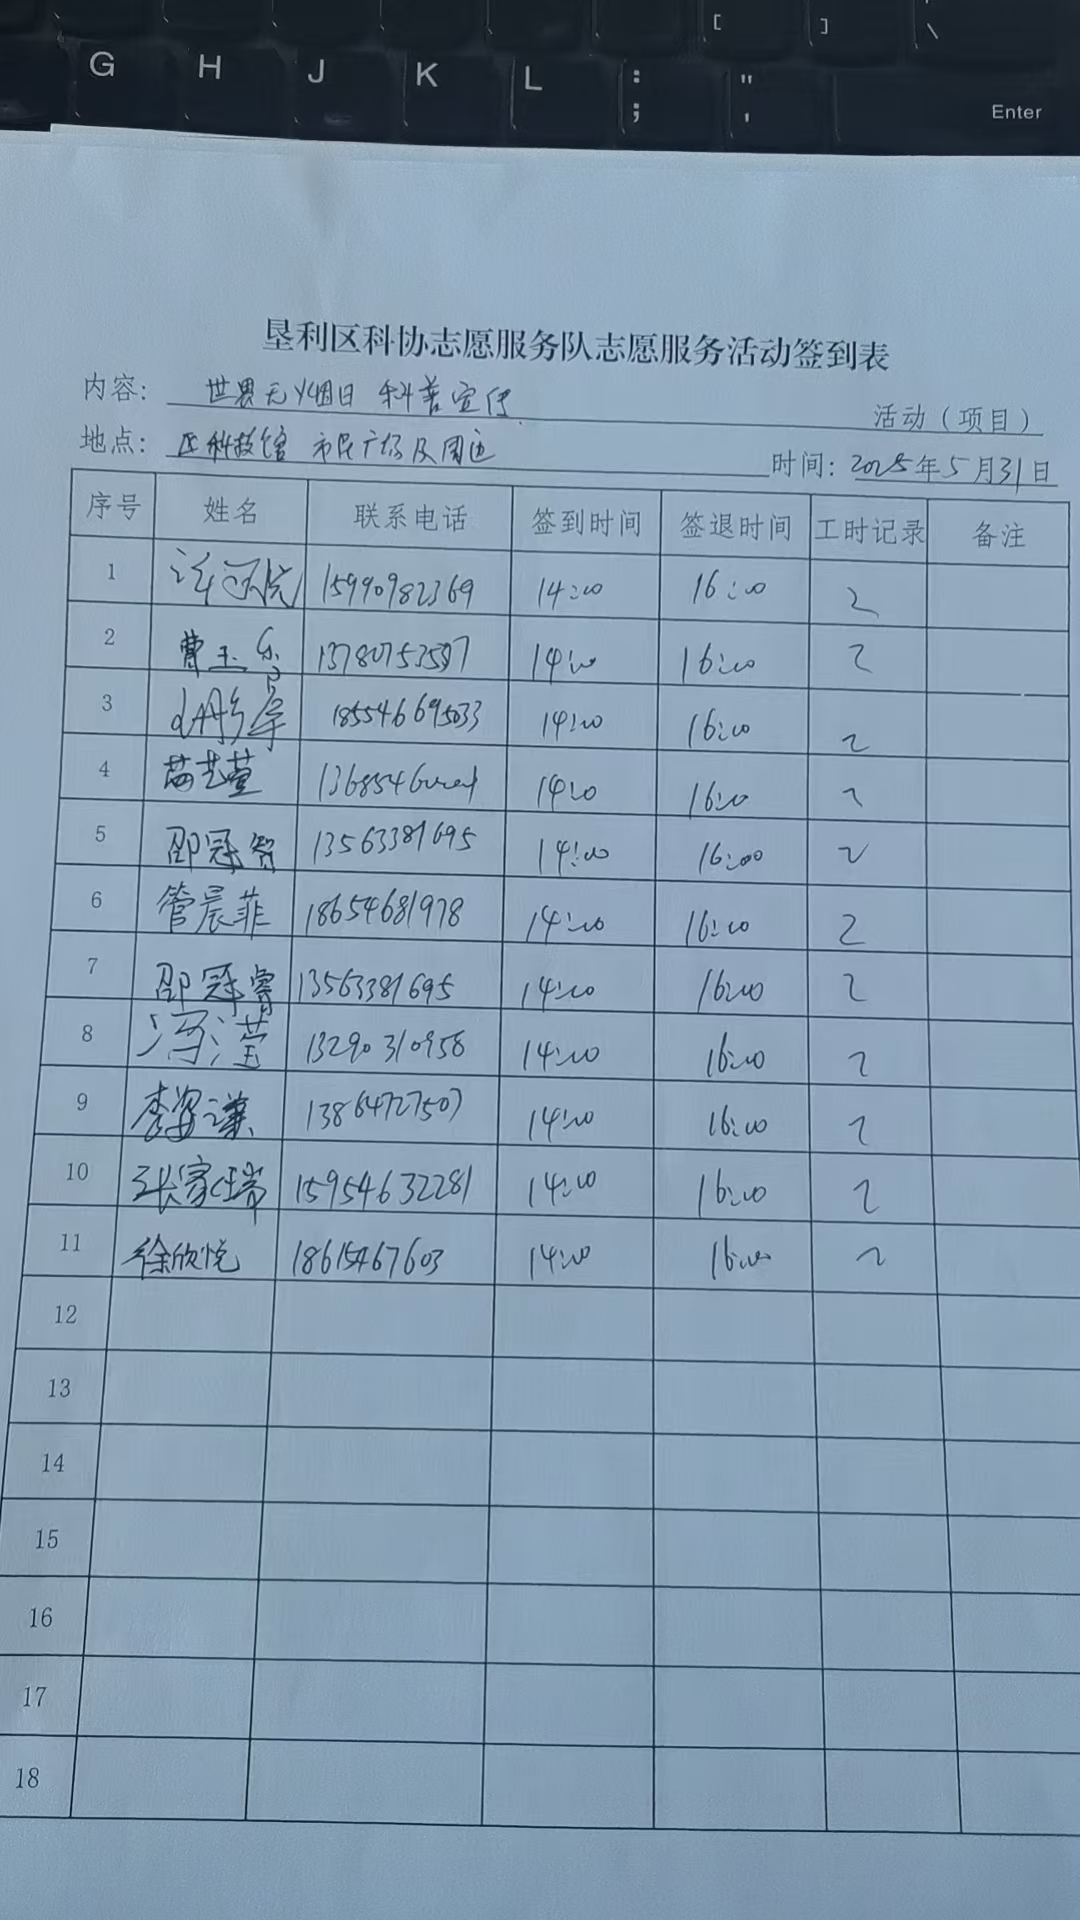 [ ]
\
G H J K L : ; " ' Enter
垦利区科协志愿服务队志愿服务活动签到表
内容: 世界无烟日 科普宣传 活动（项目）
地点: 区科技馆 市民广场及周边 时间: 2025年5月31日
序号 姓名 联系电话 签到时间 签退时间 工时记录 备注
1 15990982369 14:00 16:00 2
2 曹玉 14:00 16:00 2
3 185546695033 14:00 16:00 2
4 艺萱 14:00 16:00 2
5 邵冠智 13563381695 14:00 16:00 2
6 管晨菲 18654681978 14:00 16:00 2
7 邵冠睿 13563381695 14:00 16:00 2
8 冯滢 13290310958 14:00 16:00 2
9 李姿谦 13864727507 14:00 16:00 2
10 张家瑞 15954632281 14:00 16:00 2
11 徐欣悦 18615467603 14:00 16:00 2
12
13
14
15
16
17
18